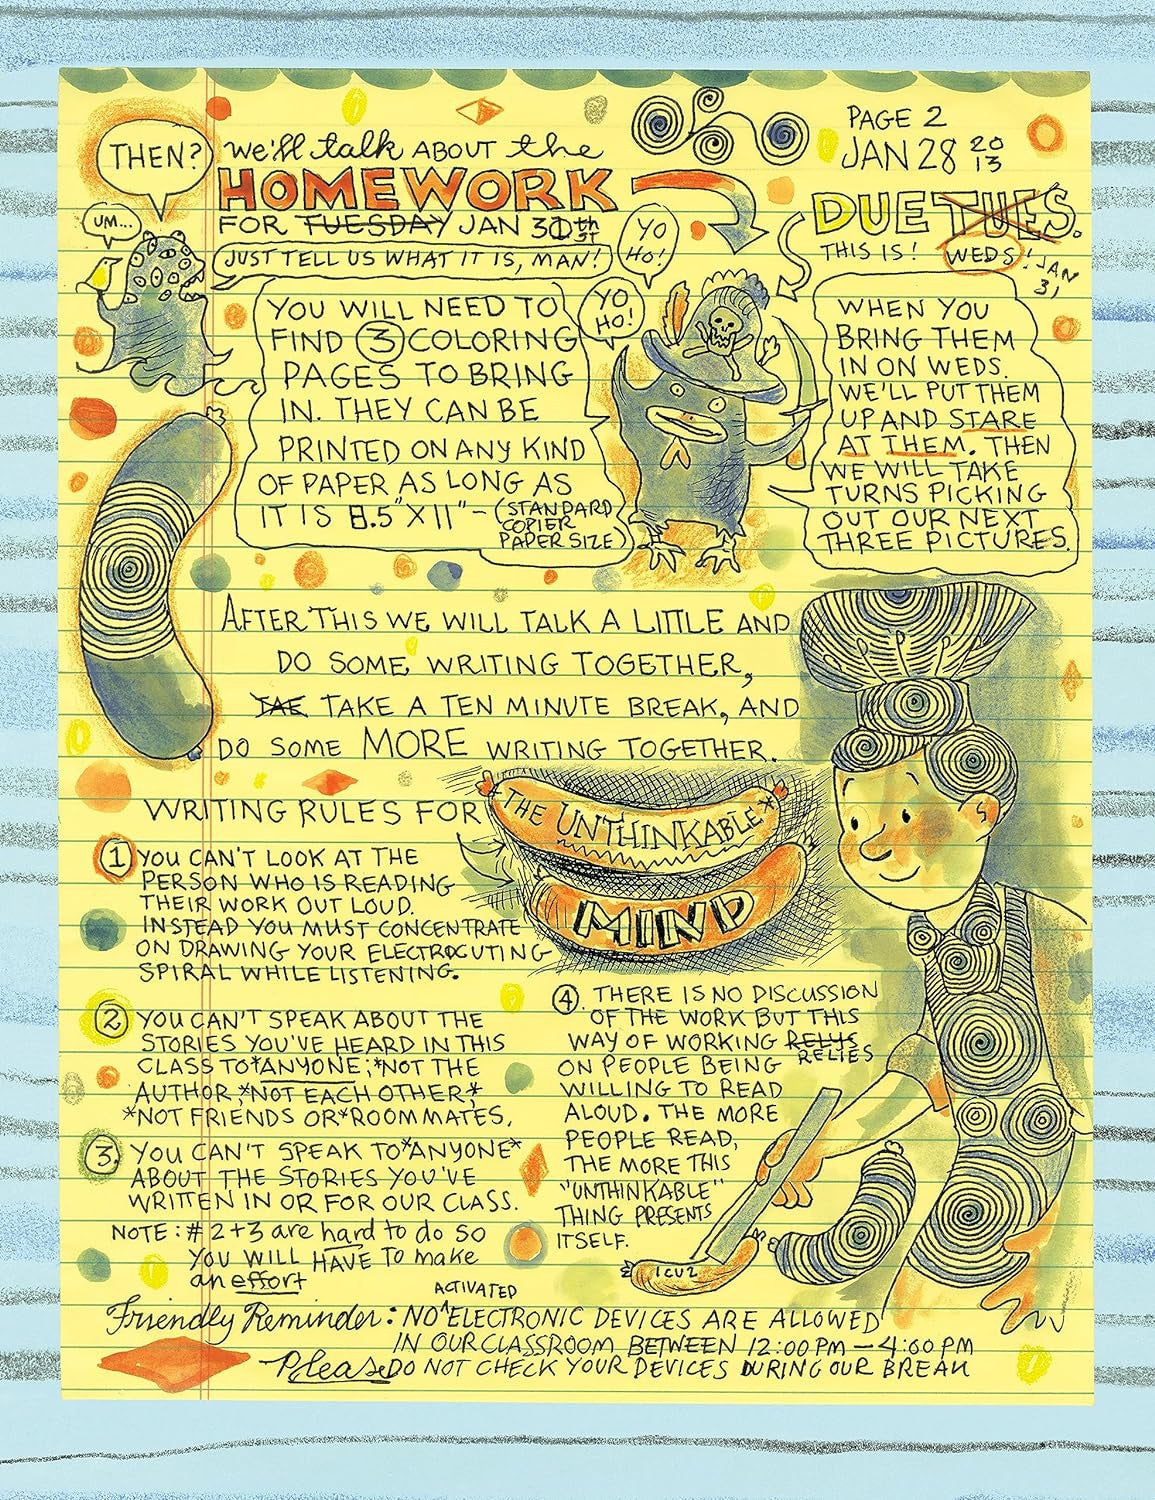 PAGE 2
JAN 28 2013
THEN?
we'll talk ABOUT the
HOMEWORK
FOR TUESDAY JAN 31st
UM...
JUST TELL US WHAT IT IS, MAN!
YO HO!
YO HO!
DUE TUES.
THIS IS! WEDS! JAN 31
YOU WILL NEED TO
FIND 3 COLORING
PAGES TO BRING
IN. THEY CAN BE
PRINTED ON ANY KIND
OF PAPER AS LONG AS
IT IS 8.5" X 11" - (STANDARD
COPIER
PAPER SIZE)
WHEN YOU
BRING THEM
IN ON WEDS.
WE'LL PUT THEM
UP AND STARE
AT THEM. THEN
WE WILL TAKE
TURNS PICKING
OUT OUR NEXT
THREE PICTURES.
AFTER THIS WE WILL TALK A LITTLE AND
DO SOME WRITING TOGETHER,
TAE TAKE A TEN MINUTE BREAK, AND
DO SOME MORE WRITING TOGETHER.
WRITING RULES FOR
THE UNTHINKABLE
MIND
1 YOU CAN'T LOOK AT THE
PERSON WHO IS READING
THEIR WORK OUT LOUD.
INSTEAD YOU MUST CONCENTRATE
ON DRAWING YOUR ELECTROCUTING
SPIRAL WHILE LISTENING.
2 YOU CAN'T SPEAK ABOUT THE
STORIES YOU'VE HEARD IN THIS
CLASS TO *ANYONE; *NOT THE
AUTHOR, *NOT EACH OTHER, *
*NOT FRIENDS OR *ROOMMATES.
3. YOU CAN'T SPEAK TO *ANYONE*
ABOUT THE STORIES YOU'VE
WRITTEN IN OR FOR OUR CLASS.
NOTE: # 2+3 are hard to do so
YOU WILL HAVE TO make
an effort
4. THERE IS NO DISCUSSION
OF THE WORK BUT THIS
WAY OF WORKING RELYS
RELIES
ON PEOPLE BEING
WILLING TO READ
ALOUD. THE MORE
PEOPLE READ,
THE MORE THIS
"UNTHINKABLE"
THING PRESENTS
ITSELF.
1CU2
Friendly Reminder: NO ACTIVATED ELECTRONIC DEVICES ARE ALLOWED
IN OUR CLASSROOM BETWEEN 12:00 PM — 4:00 PM
Please DO NOT CHECK YOUR DEVICES DURING OUR BREAK